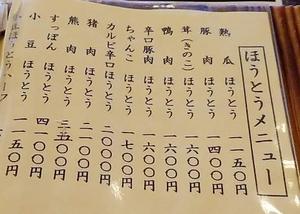 ほうとうメニュー
熟瓜ほうとう 一一五〇円
豚肉ほうとう 一四〇〇円
茸(きのこ)ほうとう 一六〇〇円
鴨肉ほうとう 一六〇〇円
辛口豚肉ほうとう 一六〇〇円
ちゃんこほうとう 一七〇〇円
カルビ辛口ほうとう 二〇〇〇円
猪肉ほうとう 二〇〇〇円
熊肉ほうとう 〇〇円
すっぽんほうとう 四一〇〇円
小豆ほうとう 一一五〇円
小豆ほうとうハーフ